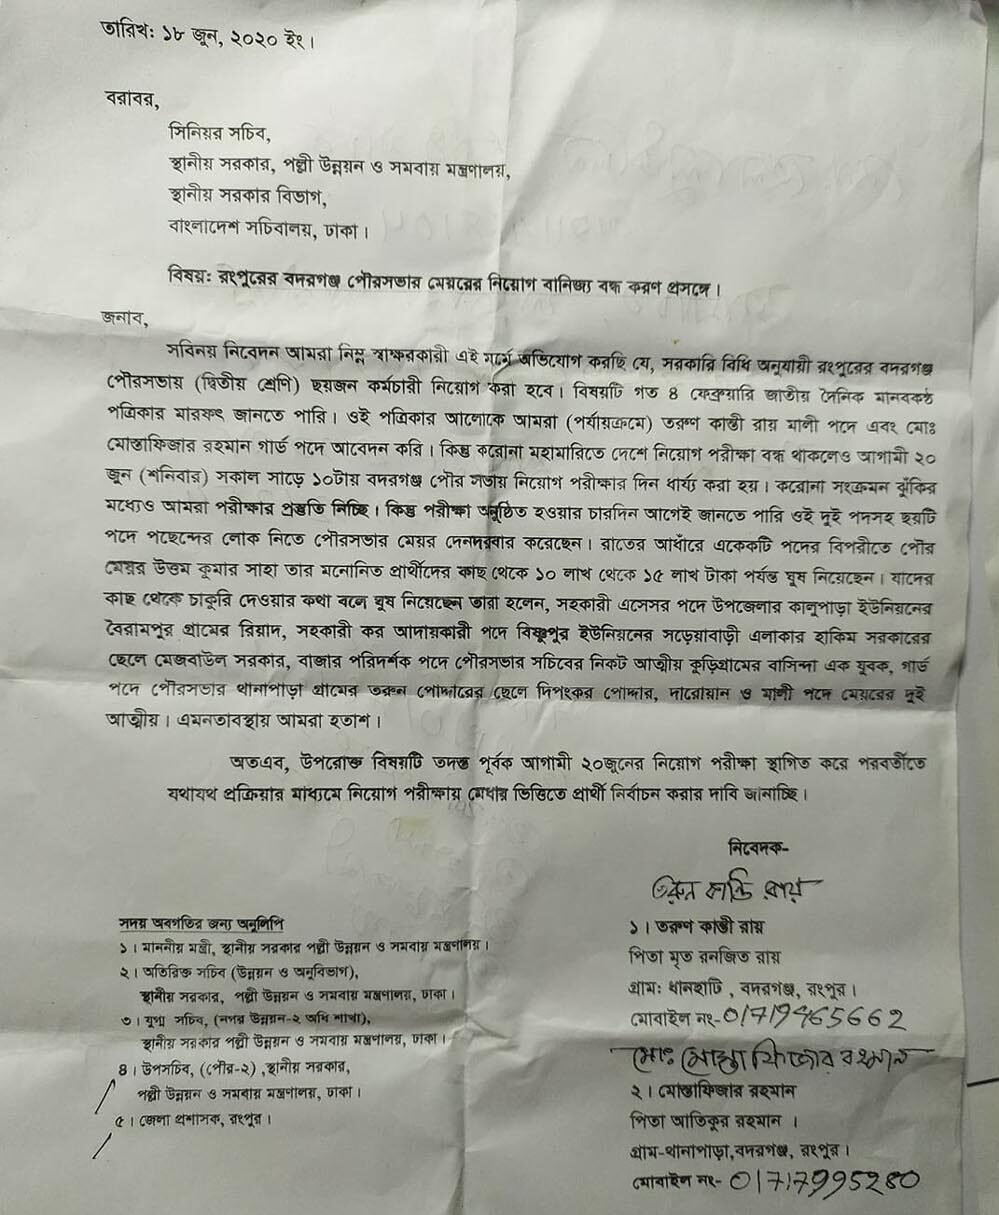 তারিখ: ১৮ জুন, ২০২০ ইং।
বরাবর,
সিনিয়র সচিব,
স্থানীয় সরকার, পল্লী উন্নয়ন ও সমবায় মন্ত্রণালয়,
স্থানীয় সরকার বিভাগ,
বাংলাদেশ সচিবালয়, ঢাকা।
বিষয়: রংপুরের বদরগঞ্জ পৌরসভার মেয়রের নিয়োগ বানিজ্য বন্ধ করণ প্রসঙ্গে।
জনাব,
সবিনয় নিবেদন আমরা নিম্ন স্বাক্ষরকারী এই মর্মে অভিযোগ করছি যে, সরকারি বিধি অনুযায়ী রংপুরের বদরগঞ্জ
পৌরসভায় (দ্বিতীয় শ্রেণি) ছয়জন কর্মচারী নিয়োগ করা হবে। বিষয়টি গত ৪ ফেব্রুয়ারি জাতীয় দৈনিক মানবকন্ঠ
পত্রিকার মারফৎ জানতে পারি। ওই পত্রিকার আলোকে আমরা (পর্যায়ক্রমে) তরুণ কান্তী রায় মালী পদে এবং মোঃ
মোস্তাফিজার রহমান গার্ড পদে আবেদন করি। কিন্তু করোনা মহামারিতে দেশে নিয়োগ পরীক্ষা বন্ধ থাকলেও আগামী ২০
জুন (শনিবার) সকাল সাড়ে ১০টায় বদরগঞ্জ পৌর সভায় নিয়োগ পরীক্ষার দিন ধার্য্য করা হয়। করোনা সংক্রমন ঝুঁকির
মধ্যেও আমরা পরীক্ষার প্রস্তুতি নিচ্ছি। কিন্তু পরীক্ষা অনুষ্ঠিত হওয়ার চারদিন আগেই জানতে পারি ওই দুই পদসহ ছয়টি
পদে পছন্দের লোক নিতে পৌরসভার মেয়র দেনদরবার করেছেন। রাতের আধাঁরে একেকটি পদের বিপরীতে পৌর
মেয়র উত্তম কুমার সাহা তার মনোনিত প্রার্থীদের কাছ থেকে ১০ লাখ থেকে ১৫ লাখ টাকা পর্যন্ত ঘুষ নিয়েছেন। যাদের
কাছ থেকে চাকুরি দেওয়ার কথা বলে ঘুষ নিয়েছেন তারা হলেন, সহকারী এসেসর পদে উপজেলার কালুপাড়া ইউনিয়নের
বৈরামপুর গ্রামের রিয়াদ, সহকারী কর আদায়কারী পদে বিষ্ণুপুর ইউনিয়নের সড়েয়াবাড়ী এলাকার হাকিম সরকারের
ছেলে মেজবাউল সরকার, বাজার পরিদর্শক পদে পৌরসভার সচিবের নিকট আত্মীয় কুড়িগ্রামের বাসিন্দা এক যুবক, গার্ড
পদে পৌরসভার থানাপাড়া গ্রামের তরুন পোদ্দারের ছেলে দিপংকর পোদ্দার, দারোয়ান ও মালী পদে মেয়রের দুই
আত্মীয়। এমনতাবস্থায় আমরা হতাশ।
অতএব, উপরোক্ত বিষয়টি তদন্ত পূর্বক আগামী ২০জুনের নিয়োগ পরীক্ষা স্থাগিত করে পরবর্তীতে
যথাযথ প্রক্রিয়ার মাধ্যমে নিয়োগ পরীক্ষায় মেধার ভিত্তিতে প্রার্থী নির্বাচন করার দাবি জানাচ্ছি।
নিবেদক-
তরুন কান্তি রায়
১। তরুণ কান্তী রায়
পিতা মৃত রনজিত রায়
গ্রাম: ধানহাটি , বদরগঞ্জ, রংপুর।
মোবাইল নং-01719465662
মোঃ মোস্তাফিজার রহমান
২। মোস্তাফিজার রহমান
পিতা আতিকুর রহমান ।
গ্রাম-থানাপাড়া,বদরগঞ্জ, রংপুর।
মোবাইল নং- 01717995280
সদয় অবগতির জন্য অনুলিপি
১। মাননীয় মন্ত্রী, স্থানীয় সরকার পল্লী উন্নয়ন ও সমবায় মন্ত্রণালয়।
২। অতিরিক্ত সচিব (উন্নয়ন ও অনুবিভাগ),
স্থানীয় সরকার, পল্লী উন্নয়ন ও সমবায় মন্ত্রণালয়, ঢাকা।
৩। যুগ্ম সচিব, (নগর উন্নয়ন-২ অধি শাখা),
স্থানীয় সরকার পল্লী উন্নয়ন ও সমবায় মন্ত্রণালয়, ঢাকা।
৪। উপসচিব, (পৌর-২) ,স্থানীয় সরকার,
পল্লী উন্নয়ন ও সমবায় মন্ত্রণালয়, ঢাকা।
৫। জেলা প্রশাসক, রংপুর।